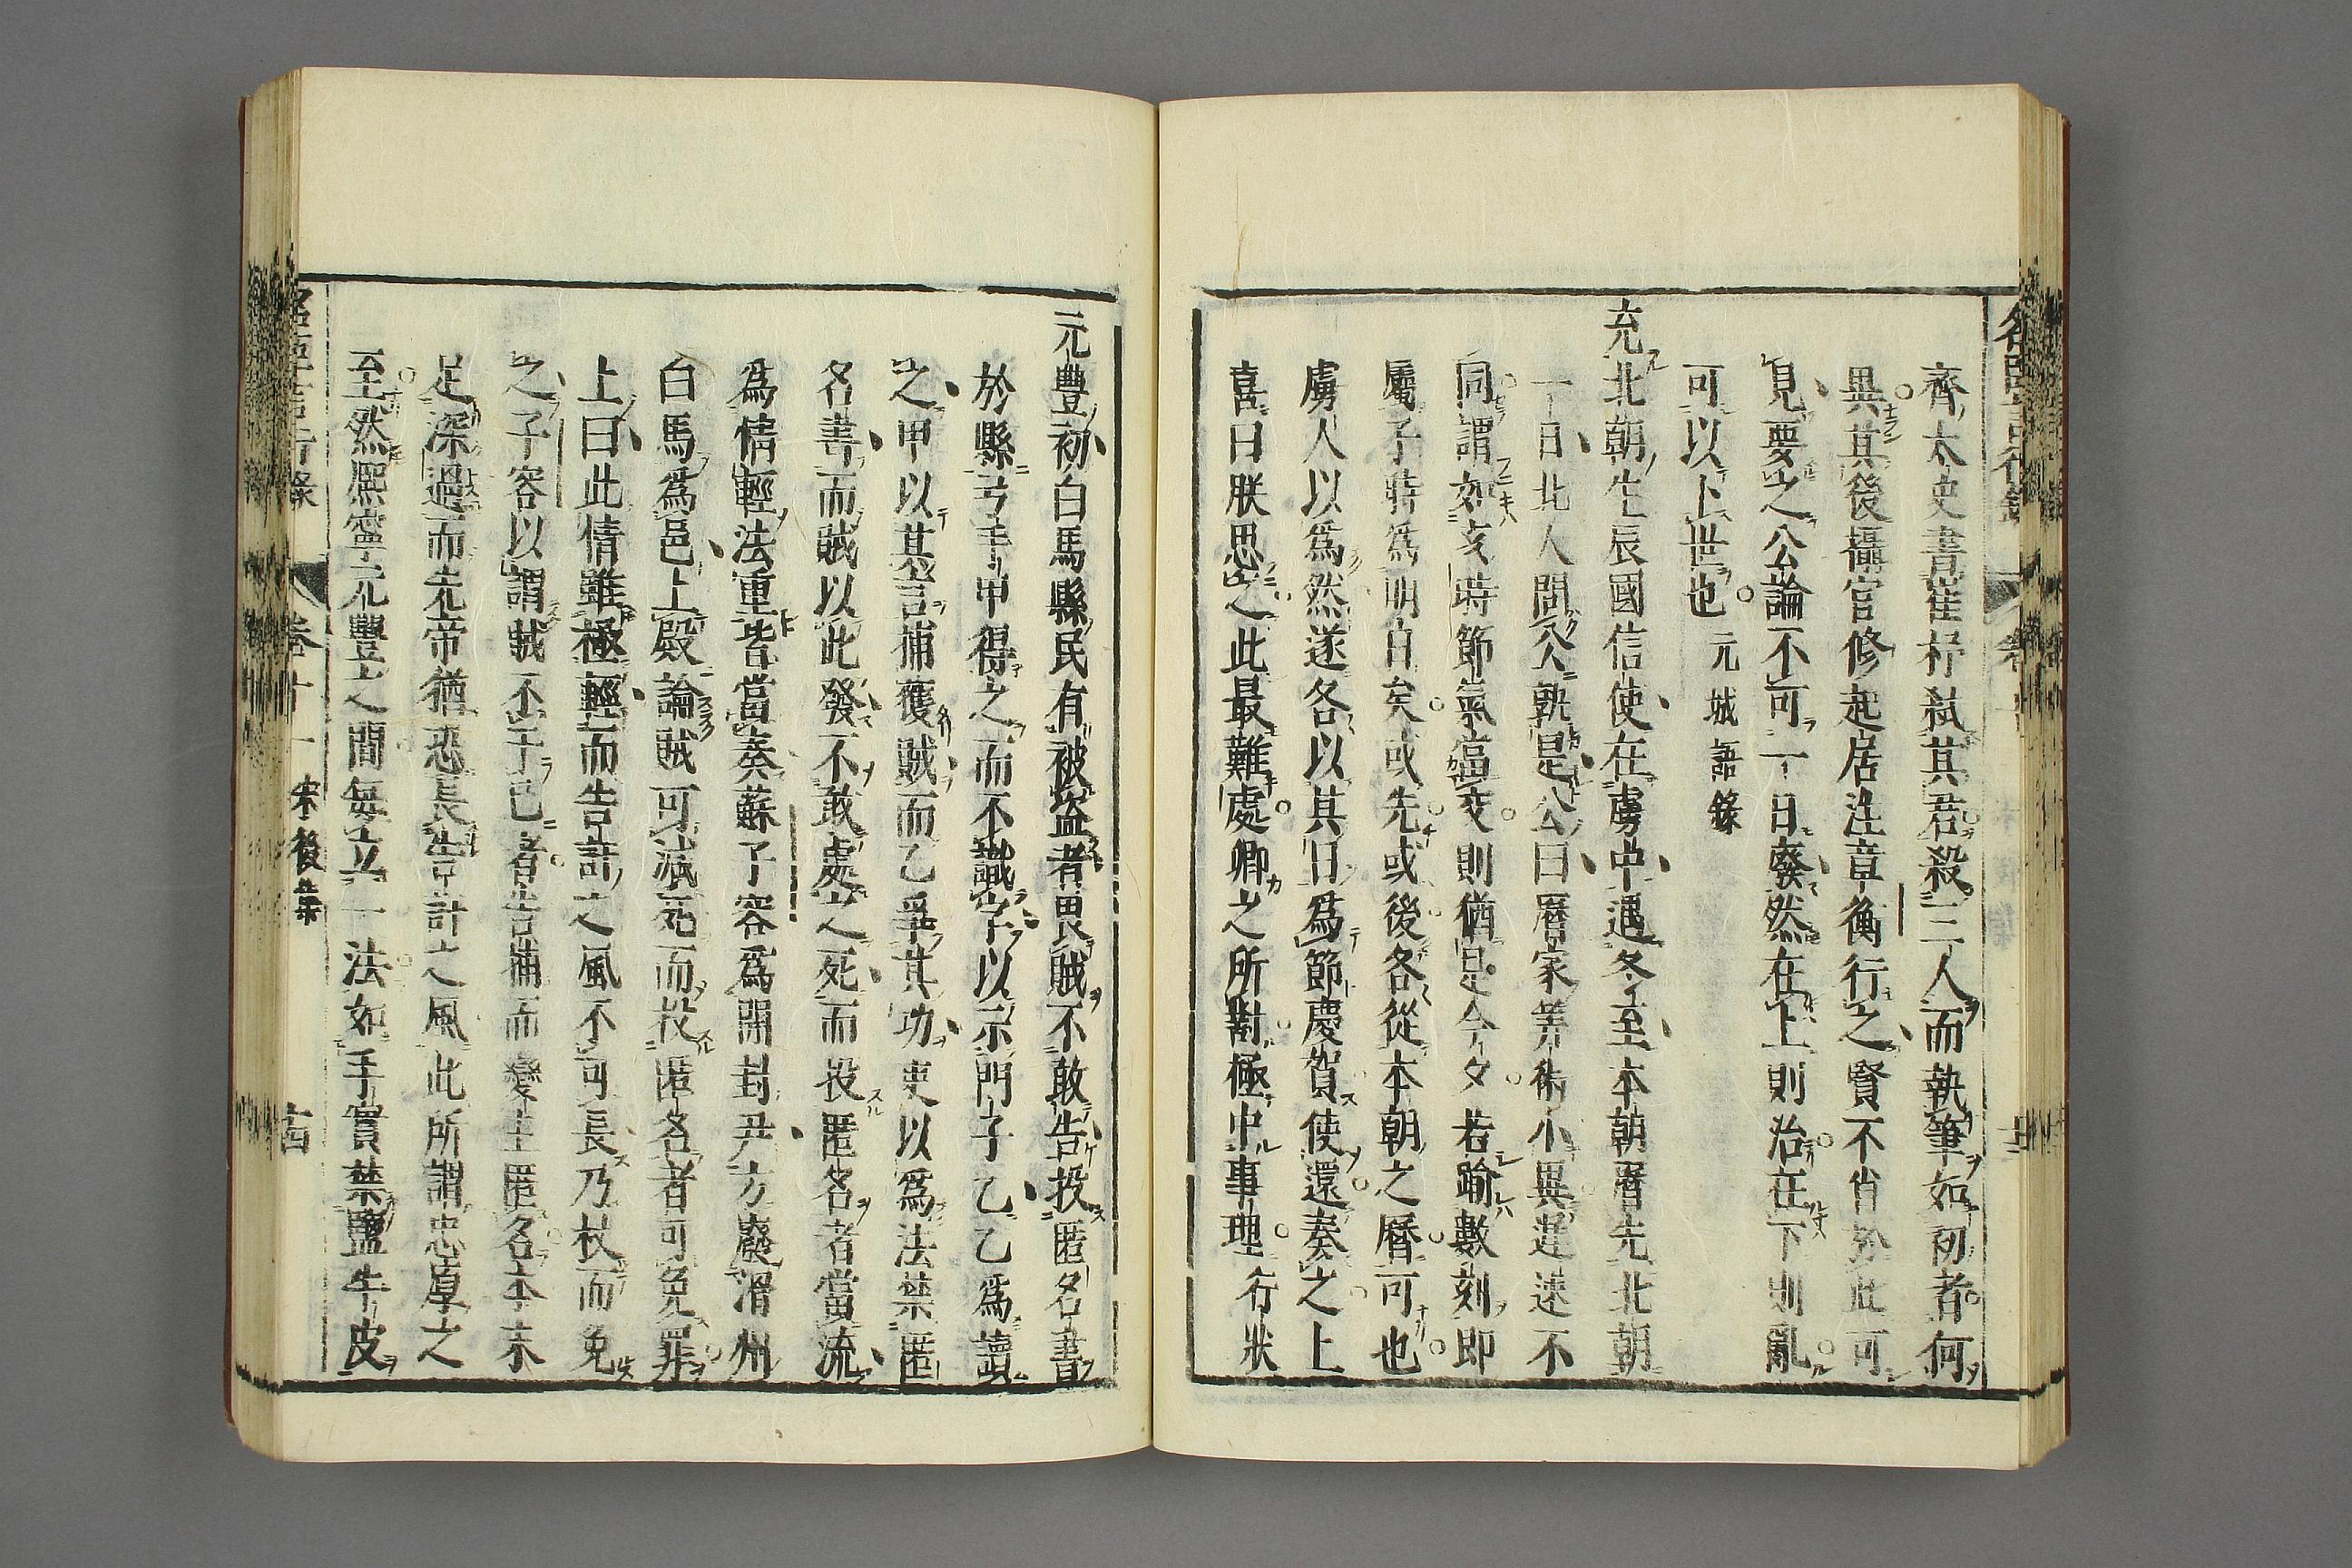 齊太史書崔杼弑其君殺三人而執筆如初者何
異其後攝官修起居注章衡行之賢不肖於此可
見要之公論不可一日廢然在上則治在下則亂
可以卜世也 元城語錄
充北朝生辰國信使在虜中遇冬至本朝曆先北朝
一日北人問公孰是公曰曆家筭術小異遲速不
同謂如亥時節氣當交則猶是今夕若踰數刻即
屬子時爲明日矣或先或後各從本朝之曆可也
虜人以爲然遂各以其日爲節慶賀使還奏之上
喜曰朕思之此最難處卿之所對極中事理 行狀
元豐初白馬縣民有被盜者畏賊不敢告投匿名書
於縣弓手甲得之而不識字以示門子乙乙爲讀
之甲以其言捕獲賊而乙爭其功吏以爲法禁匿
名書而賊以此發不敢處之死而投匿名者當流
爲情輕法重皆當奏蘇子容爲開封尹方廢滑州
白馬爲邑上殿論賊可減死而投匿名者可免罪
上曰此情雖極輕而告訐之風不可長乃杖而免
之子容以謂賊不干己者告捕而變主匿名本末
足深過而先帝猶恐長告訐之風此所謂忠厚之
至然熙寧元豐之間每立一法如手實禁鹽牛皮
卷十一 宋後集 十四